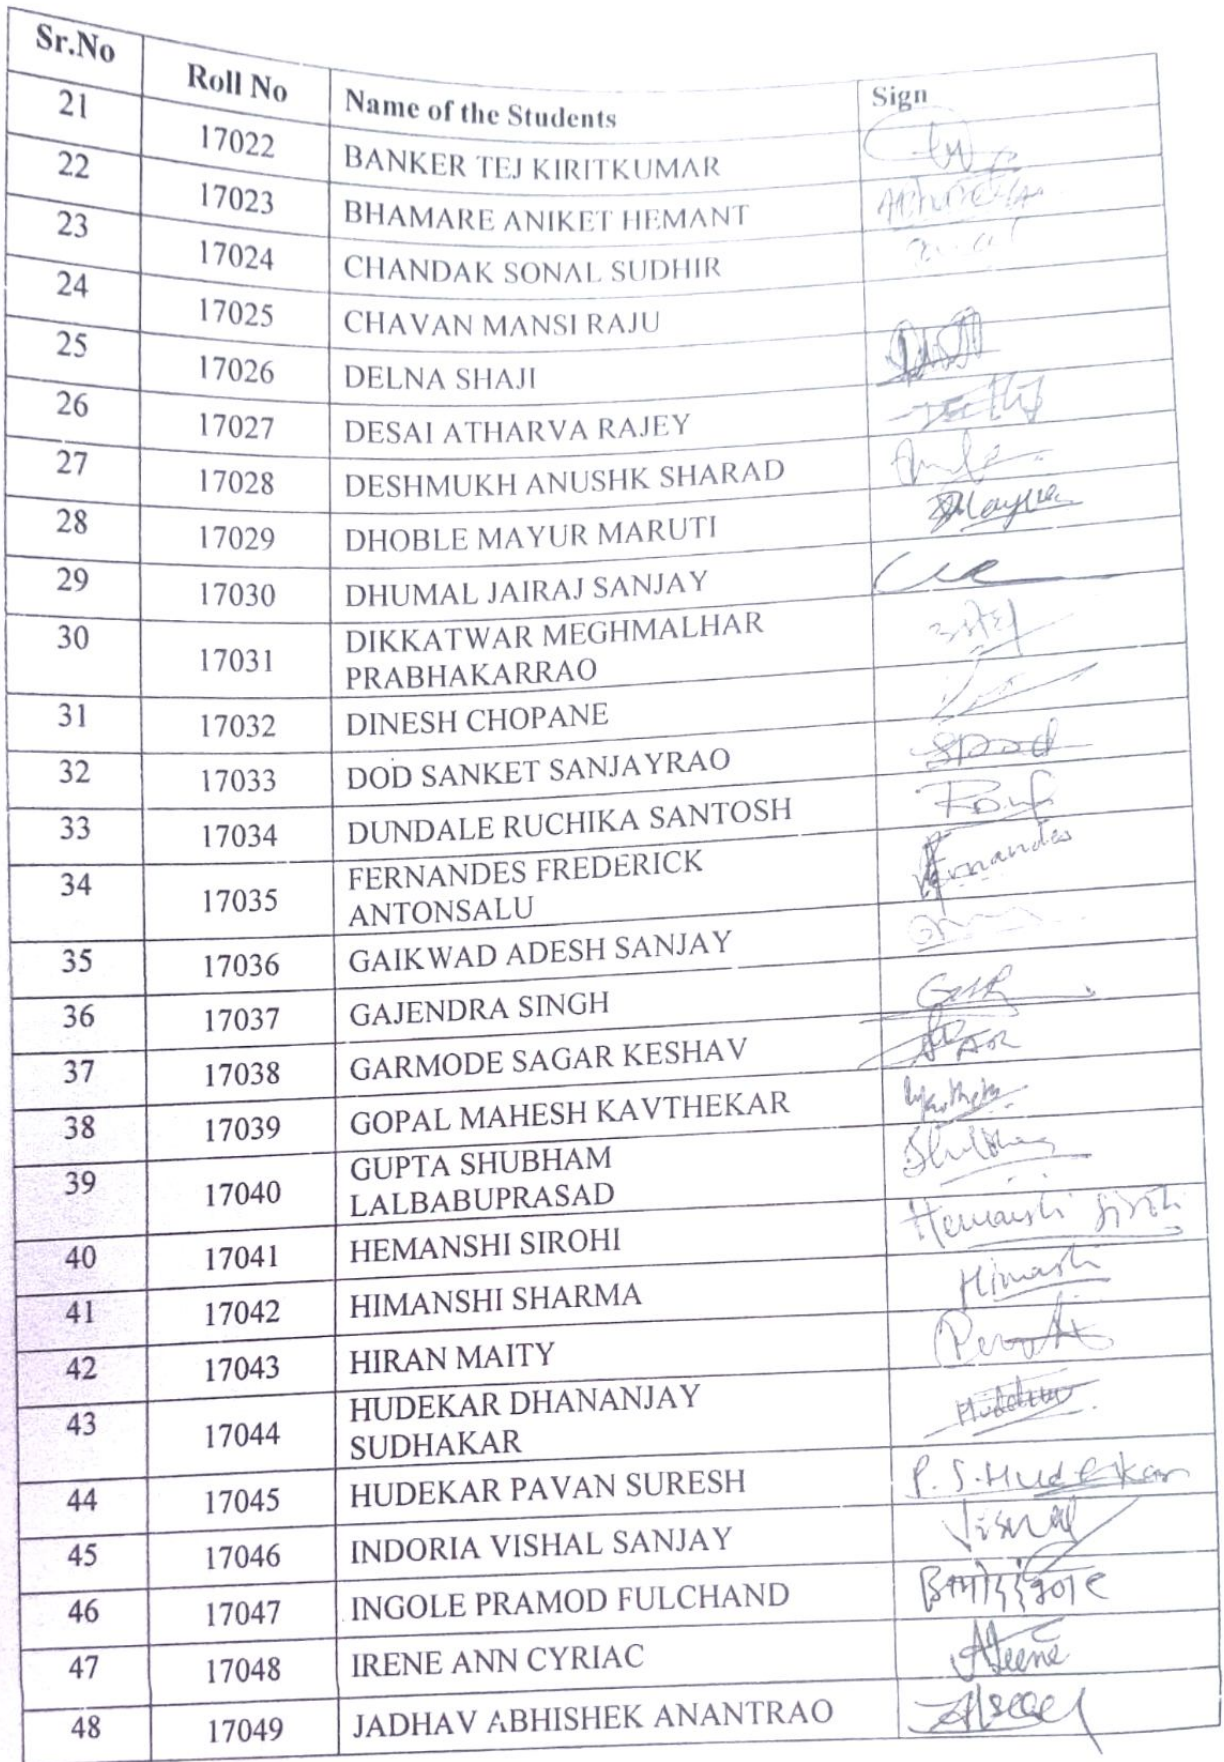 Sr.No Roll No Name of the Students Sign
21 17022 BANKER TEJ KIRITKUMAR
22 17023 BHAMARE ANIKET HEMANT
23 17024 CHANDAK SONAL SUDHIR
24 17025 CHAVAN MANSI RAJU
25 17026 DELNA SHAJI
26 17027 DESAI ATHARVA RAJEY
27 17028 DESHMUKH ANUSHK SHARAD
28 17029 DHOBLE MAYUR MARUTI
29 17030 DHUMAL JAIRAJ SANJAY
30 17031 DIKKATWAR MEGHMALHAR
PRABHAKARRAO
31 17032 DINESH CHOPANE
32 17033 DOD SANKET SANJAYRAO
33 17034 DUNDALE RUCHIKA SANTOSH
34 17035 FERNANDES FREDERICK
ANTONSALU Fernandes
35 17036 GAIKWAD ADESH SANJAY
36 17037 GAJENDRA SINGH
37 17038 GARMODE SAGAR KESHAV
38 17039 GOPAL MAHESH KAVTHEKAR
39 17040 GUPTA SHUBHAM
LALBABUPRASAD
40 17041 HEMANSHI SIROHI Hemanshi Sirohi
41 17042 HIMANSHI SHARMA
42 17043 HIRAN MAITY
43 17044 HUDEKAR DHANANJAY
SUDHAKAR
44 17045 HUDEKAR PAVAN SURESH P. S. Hudekar
45 17046 INDORIA VISHAL SANJAY Vishal
46 17047 INGOLE PRAMOD FULCHAND
47 17048 IRENE ANN CYRIAC
48 17049 JADHAV ABHISHEK ANANTRAO